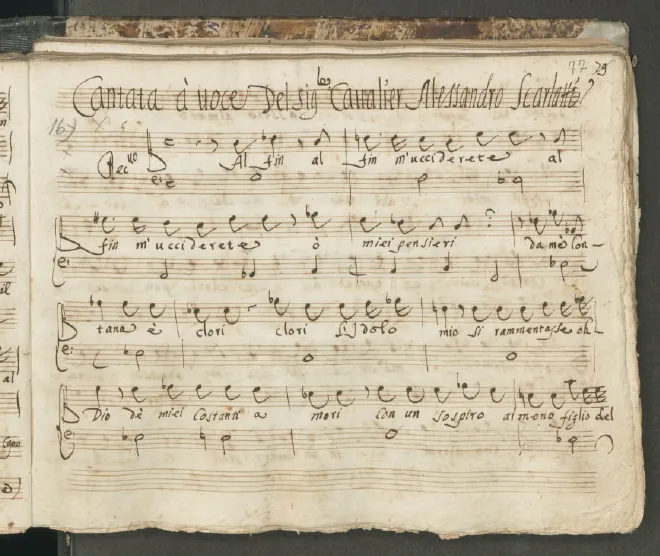 77 29
Cantata à voce Del sig.r Cavalier Alessandro Scarlatti
16)
Rec.vo Al fin al fin m'ucciderete al
fin m'ucciderete ò miei pensieri da mè lon-
tana è clori clori l'idolo mio si rammentasse oh
Dio dè miei costanti amori con un sospiro almeno figlio del